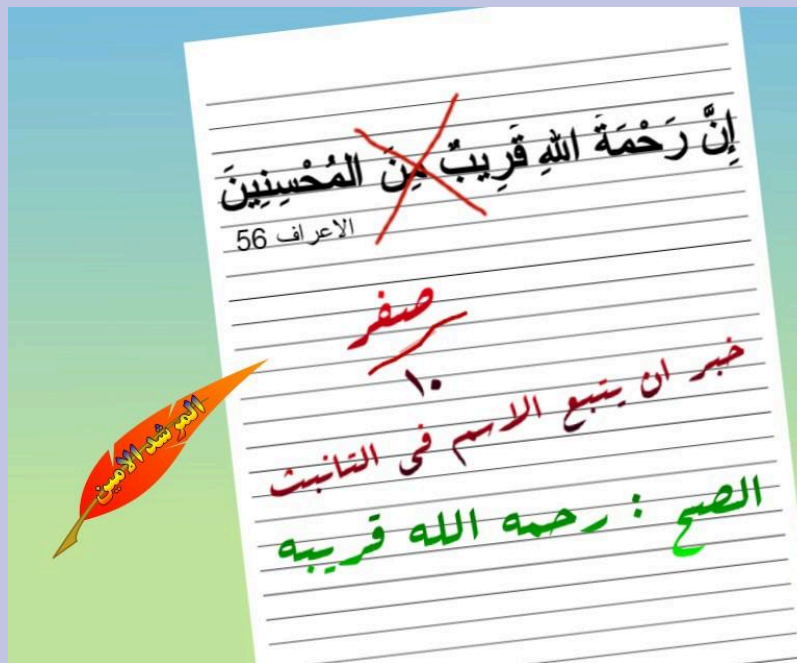 إِنَّ رَحْمَةَ اللهِ قَرِيبٌ مِنَ المُحْسِنِينَ
الاعراف 56
صفر
١٠
خبر ان يتبع الاسم فى التانيث
الصح : رحمه الله قريبه
المرشد الامين